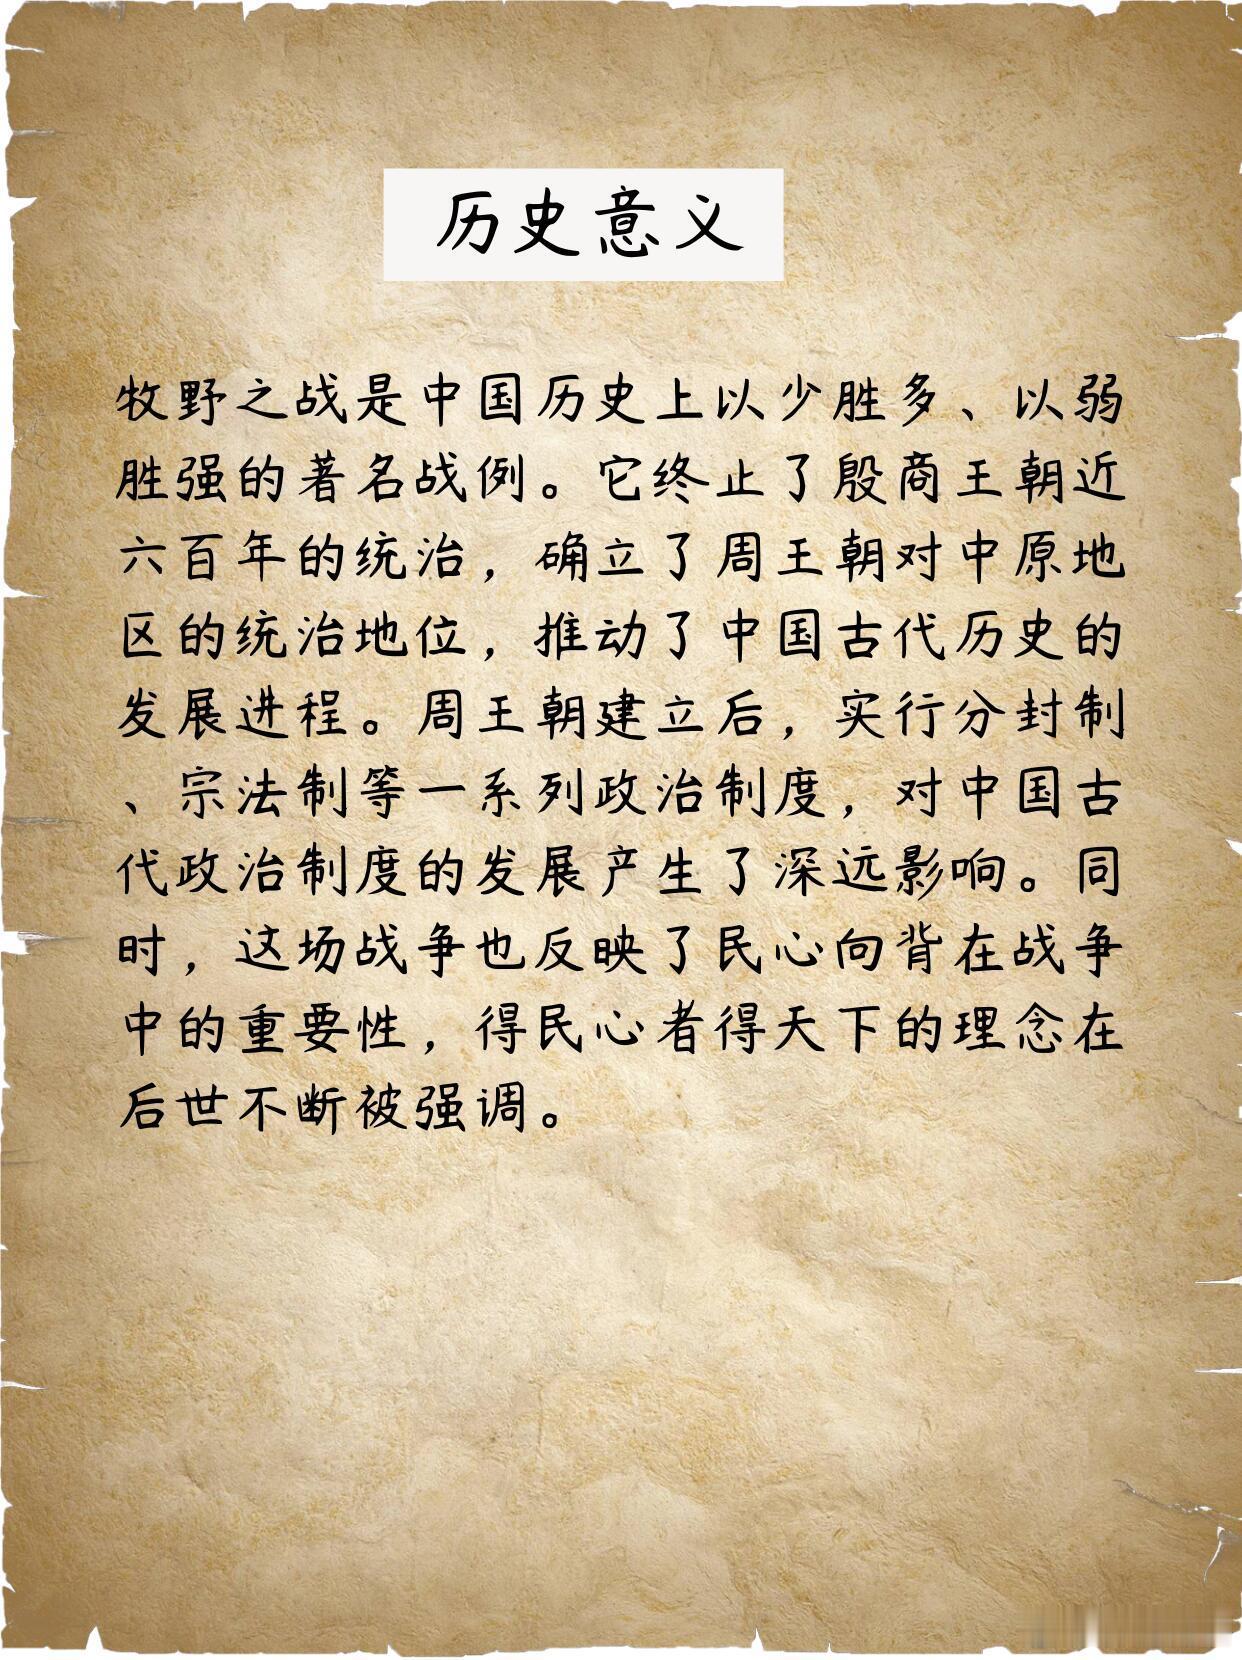 历史意义
牧野之战是中国历史上以少胜多、以弱
胜强的著名战例。它终止了殷商王朝近
六百年的统治，确立了周王朝对中原地
区的统治地位，推动了中国古代历史的
发展进程。周王朝建立后，实行分封制
、宗法制等一系列政治制度，对中国古
代政治制度的发展产生了深远影响。同
时，这场战争也反映了民心向背在战争
中的重要性，得民心者得天下的理念在
后世不断被强调。